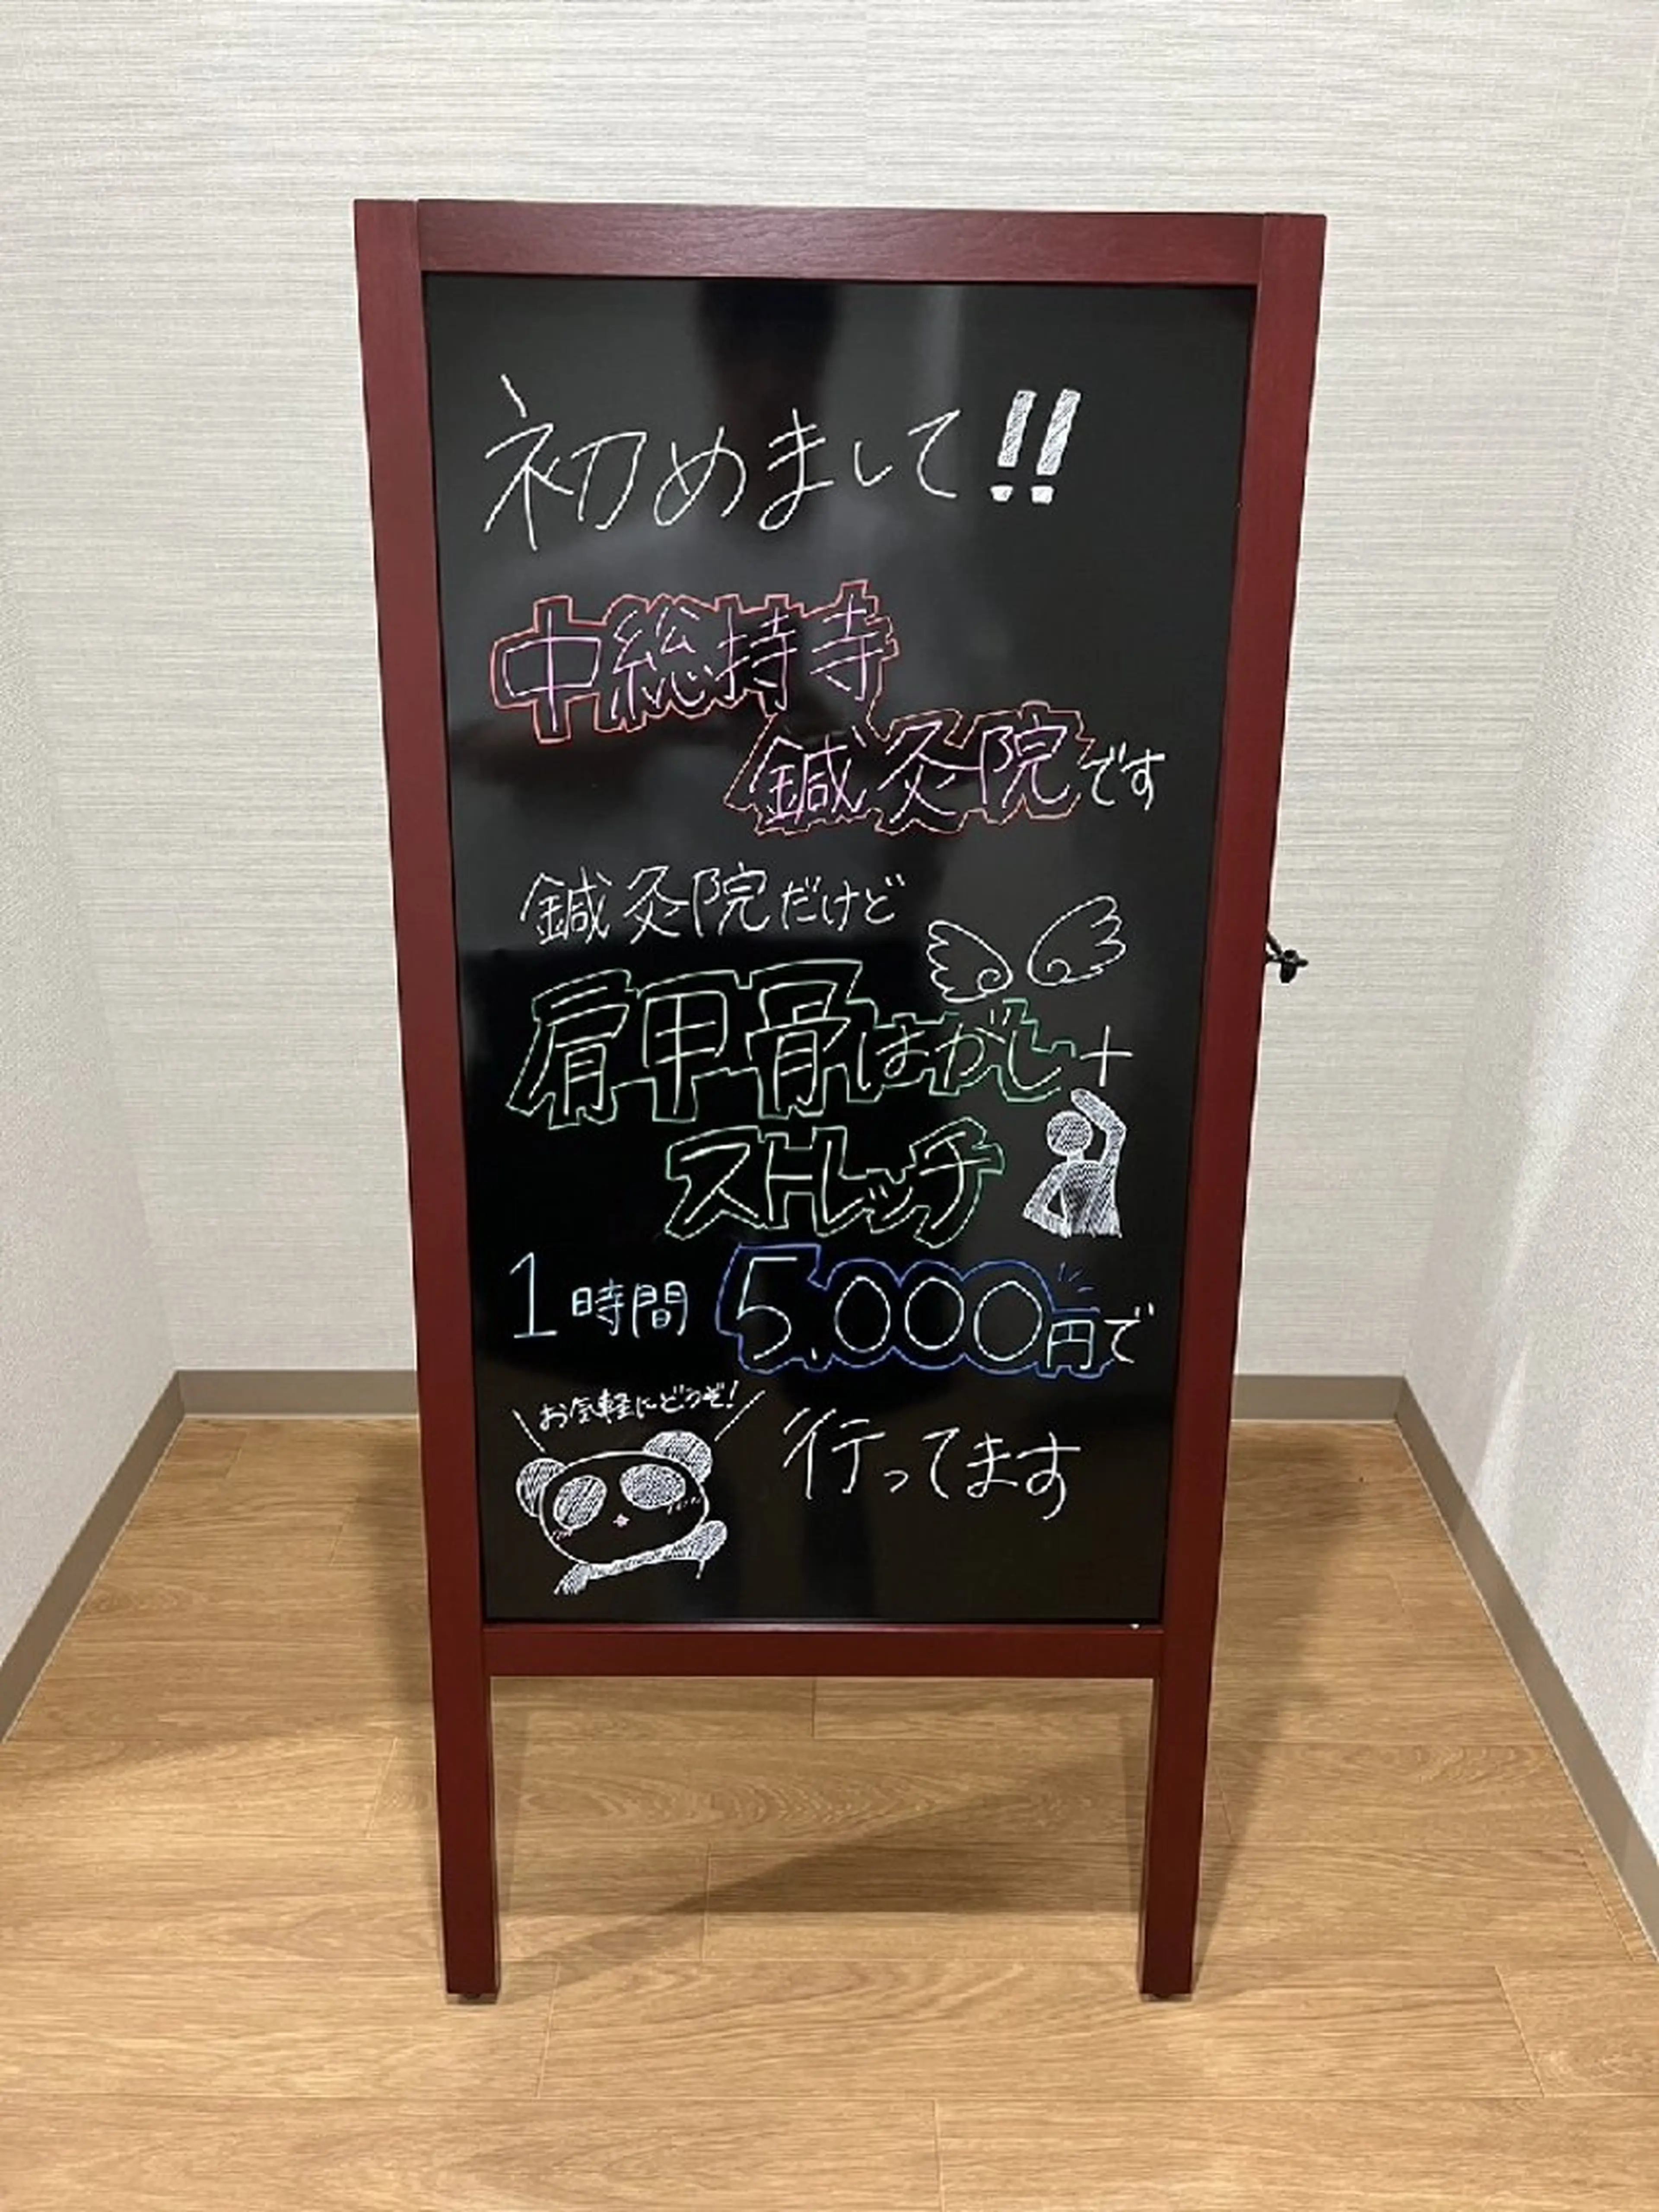 初めまして!!
中総持寺
鍼灸院です
鍼灸院だけど
肩甲骨はがし+
ストレッチ
1時間 5,000円で
お気軽にどうぞ!
行ってます